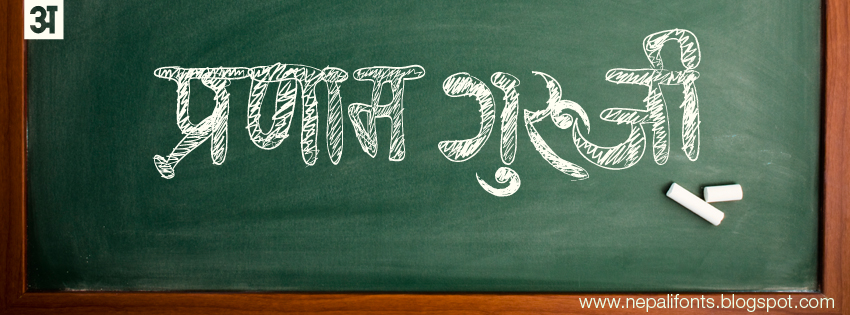 अ
प्रणाम गुरुजी
www.nepalifonts.blogspot.com